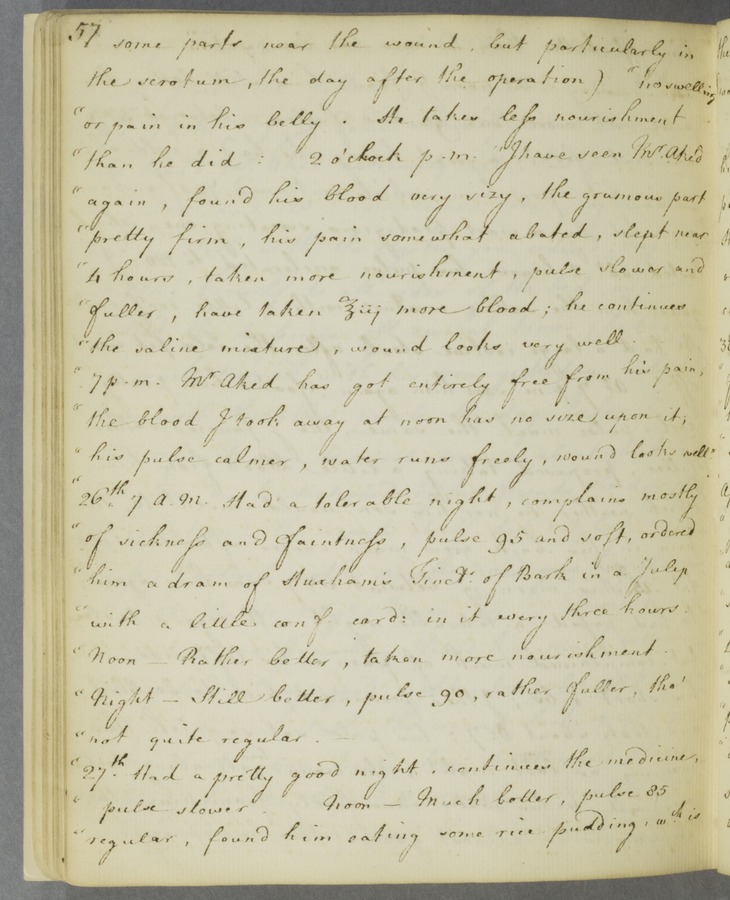 57
some parts near the wound, but particularly in
the scrotum, the day after the operation) "no swelling
"or pain in his belly. He takes less nourishment
"than he did: 2 o'clock p.m. "I have seen Mr. Aked
"again, found his blood very sizy, the grumous part
"pretty firm, his pain somewhat abated, slept near
"4 hours, taken more nourishment, pulse slower and
"fuller, have taken ℥iij more blood; he continues
"the saline mixture, wound looks very well.
"7 p.m. Mr. Aked has got entirely free from his pain,
"the blood I took away at noon has no size upon it,
"his pulse calmer, water runs freely, wound looks well"
"26th. 7 A.M. Had a tolerable night, complains mostly
"of sickness and faintness, pulse 95 and soft, ordered
"him a dram of Huxham's Tinct: of Bark in a Julep
"with a little conf card: in it every three hours.
"Noon — Rather better, taken more nourishment.
"Night — Still better, pulse 90, rather fuller, tho'
"not quite regular. —
"27th. Had a pretty good night, continues the medicine,
"pulse slower. Noon — Much better, pulse 85
"regular, found him eating some rice pudding, wch is